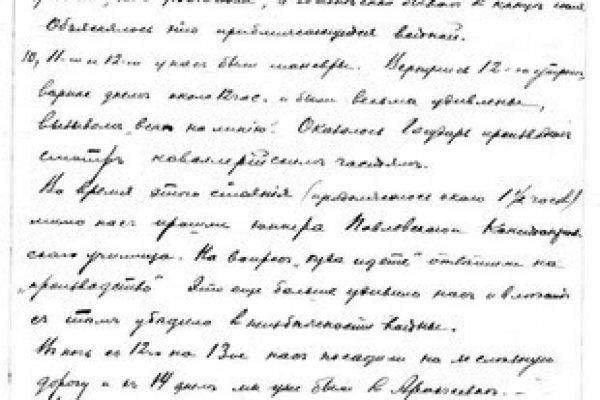 Объяснялось это приближающейся войной.
10, 11-го и 12-го у нас были маневры. Вернулись 12-го утром,
вернее днем около 12 час. и были весьма удивлены,
вызывом "всех на линию". Оказалось Государь производил
смотр кавалерийским частям.
Во время этого стояния (продолжалось около 1½ часов)
мимо нас прошли юнкера Павловского
ского училища. На вопрос "куда идете" ответили на
"производство" Это еще больше удивило нас и
с тем убедило в неизбежности войны.
В ночь с 12-го на 13-ое нас посадили на железную
дорогу и к 14 днем мы уже были в